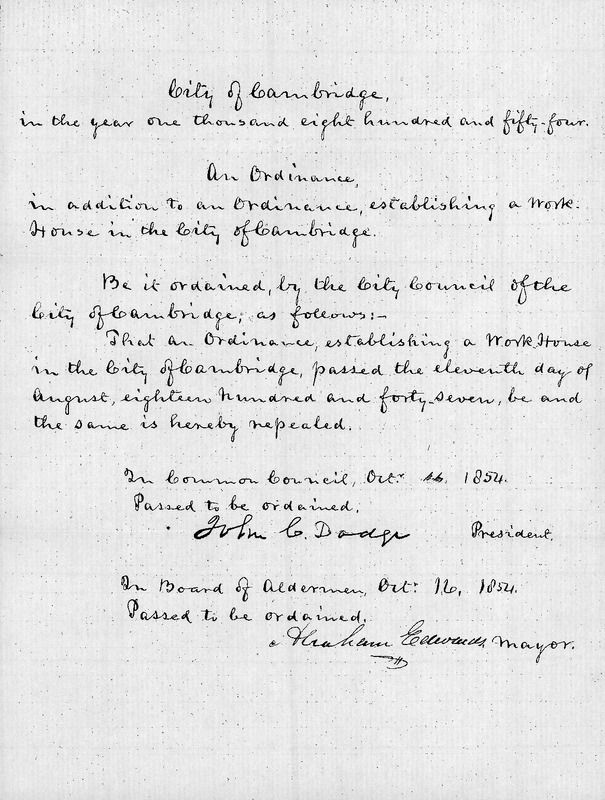 City of Cambridge,
in the year one thousand eight hundred and fifty-four.
An Ordinance,
in addition to an Ordinance, establishing a Work-
House in the City of Cambridge.
Be it ordained, by the City Council of the
City of Cambridge, as follows:-
That an Ordinance, establishing a Work House
in the City of Cambridge, passed the eleventh day of
August, eighteen hundred and forty-seven, be and
the same is hereby repealed.
In Common Council, Octr. 1854.
Passed to be ordained.
John C. Dodge President.
In Board of Aldermen, Oct: 16, 1854.
Passed to be ordained.
Abraham Edwards Mayor.